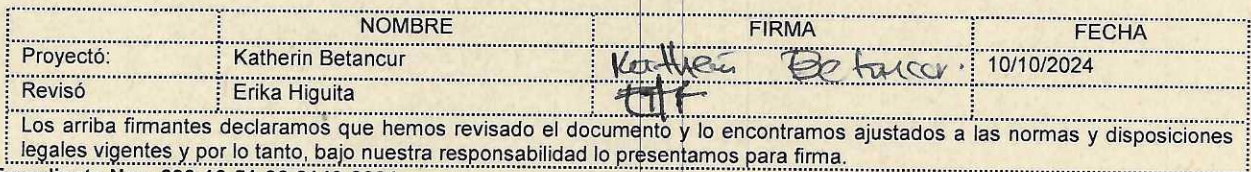 NOMBRE FIRMA FECHA
Proyectó: Katherin Betancur Katherin Betancur. 10/10/2024
Revisó Erika Higuita
Los arriba firmantes declaramos que hemos revisado el documento y lo encontramos ajustados a las normas y disposiciones
legales vigentes y por lo tanto, bajo nuestra responsabilidad lo presentamos para firma.